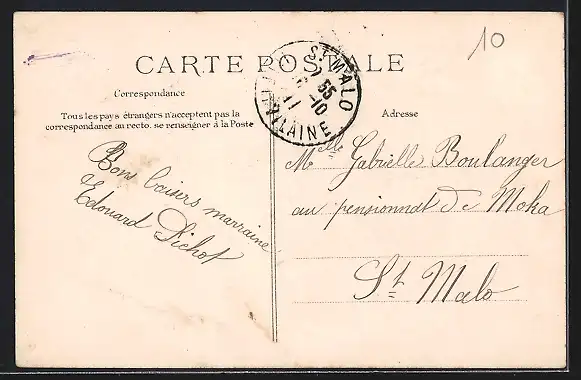 10
CARTE POSTALE
ST MALO
7 55
-10
11
VILAINE
Correspondance
Tous les pays étrangers n'acceptent pas la
correspondance au recto. se renseigner à la Poste
Adresse
Bons baisers marraine
Edouard Pichot
Melle Gabrielle Boulanger
au pensionnat de Moka
St Malo